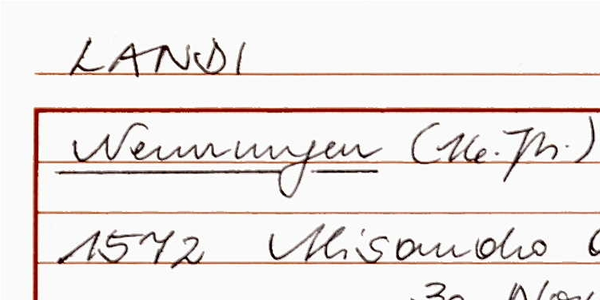 LANDI
Nennungen (16. Jh.)
1572 Misandro
30 Nov